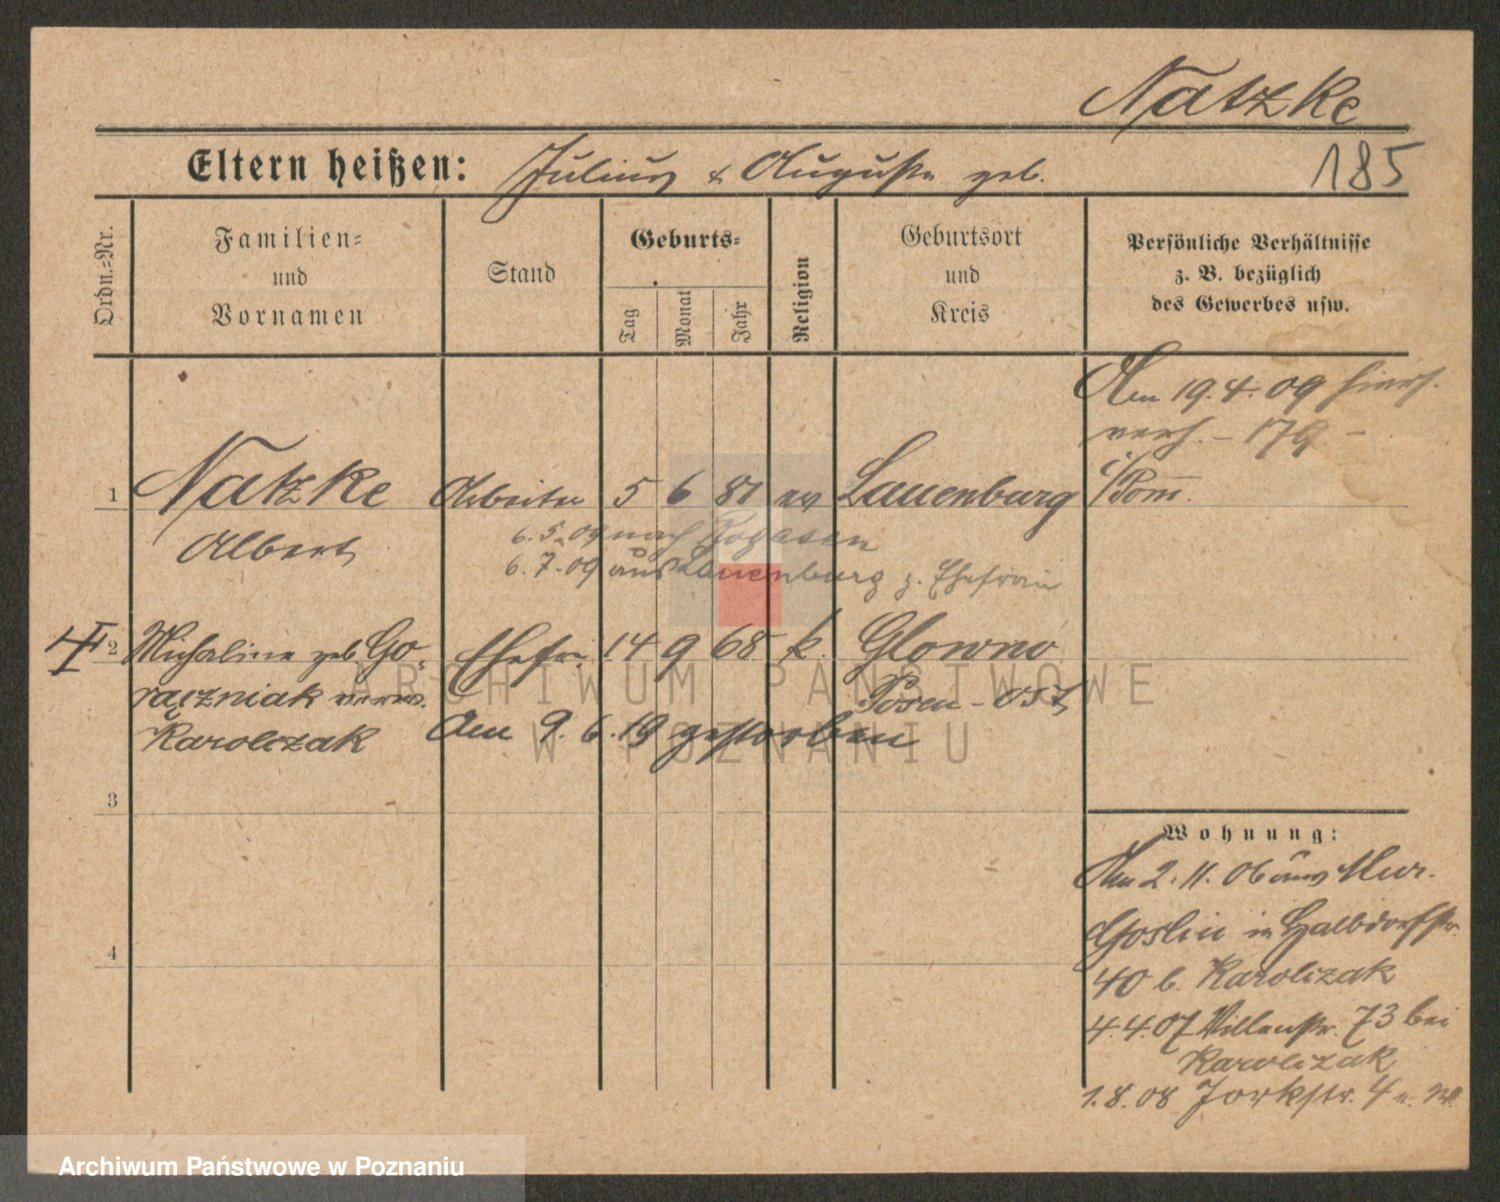 Natzke
185
Eltern heißen: Julius & Auguste geb.
Ordn.-Nr.
Familien-
und
Vornamen
Stand
Geburts-
Tag
Monat
Jahr
Religion
Geburtsort
und
Kreis
Persönliche Verhältnisse
z. B. bezüglich
des Gewerbes usw.
Am 19.4.09 hiers.
verh. – 179 –
1 Natzke Arbeiter 5 6 81 ev Lauenburg i/Pom.
Albert
6.5.09 nach Rogasen
6.7.09 aus Lauenburg z. Ehefrau
2 Michaline geb Go-
raczniak verw.
Karolczak
Ehefr. 14 9 68 k. Glowno
Posen-Ost
Am 9.6.19 gestorben
3
4
Wohnung:
Am 2.11.06 aus Mur.
Goslin in Halbdorfstr.
40 b. Karolczak
4.4.07 Villenstr. 73 bei
Karolczak
1.8.08 Jorkstr. 4
ARCHIWUM PAŃSTWOWE
W POZNANIU
Archiwum Państwowe w Poznaniu